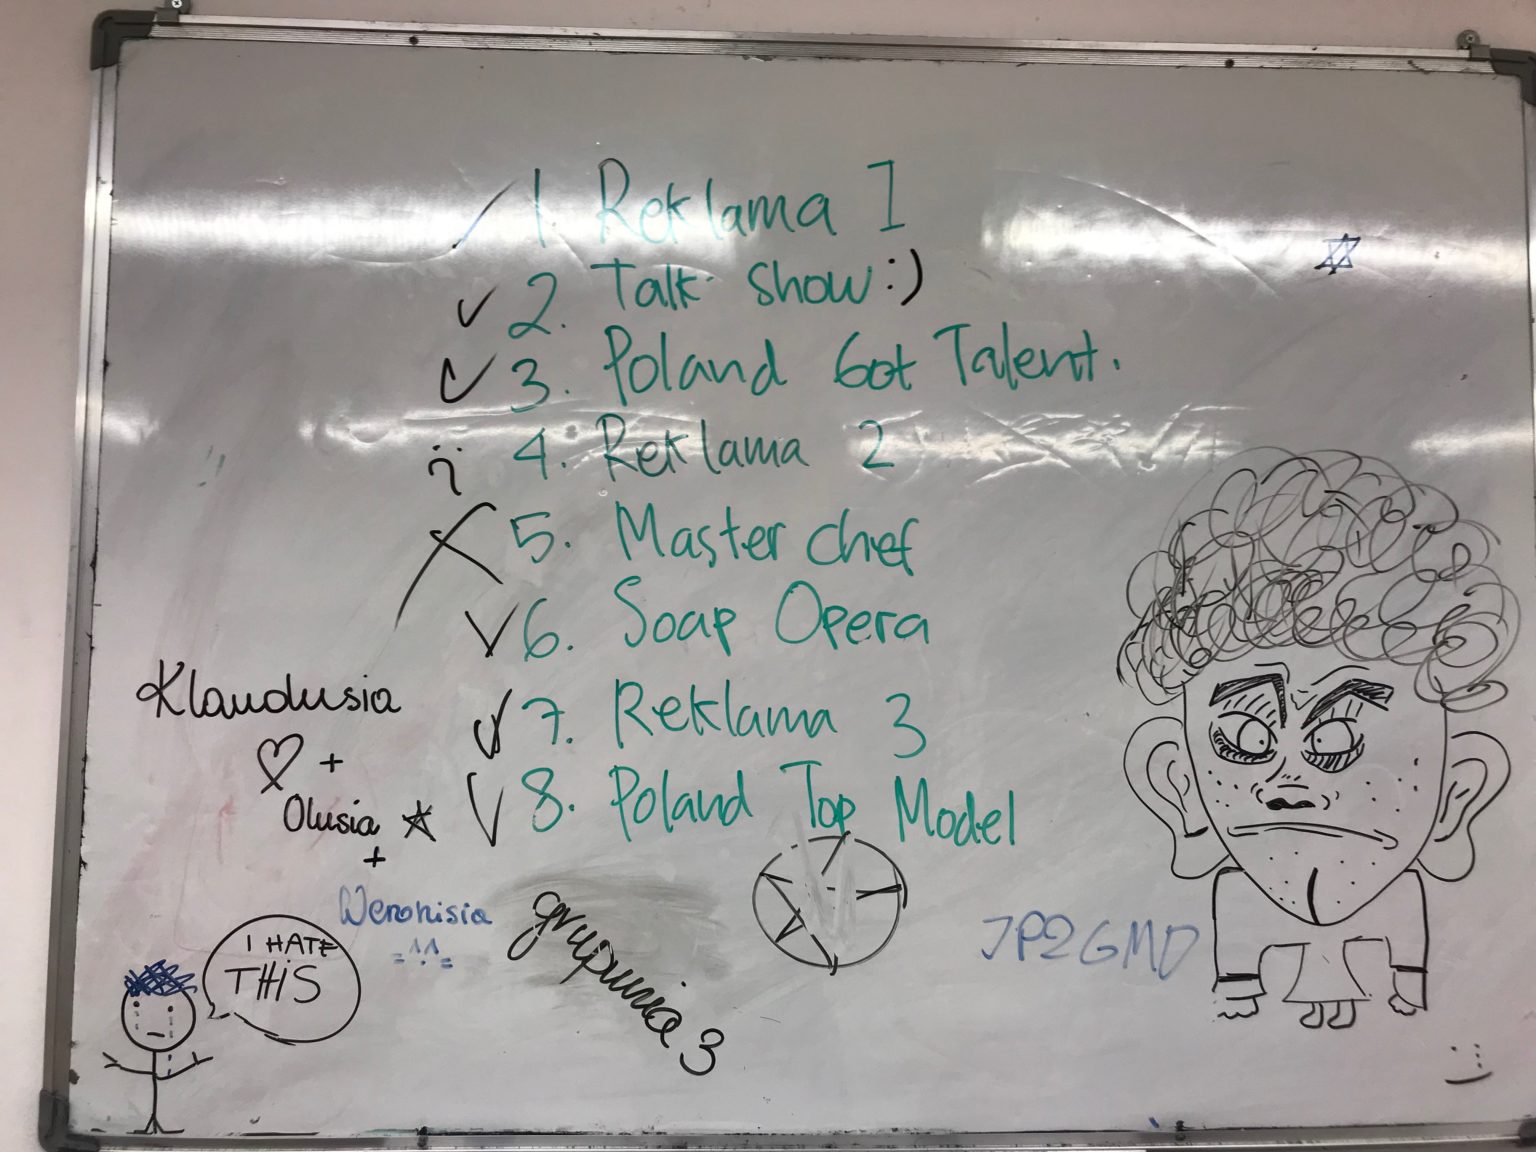 1. Reklama 1
2. Talk show :)
3. Poland Got Talent.
4. Reklama 2
5. Master chef
6. Soap Opera
7. Reklama 3
8. Poland Top Model
Klaudusia
+
Olusia
+
Weronisia
grupunia 3
JP2GMD
I HATE
THiS